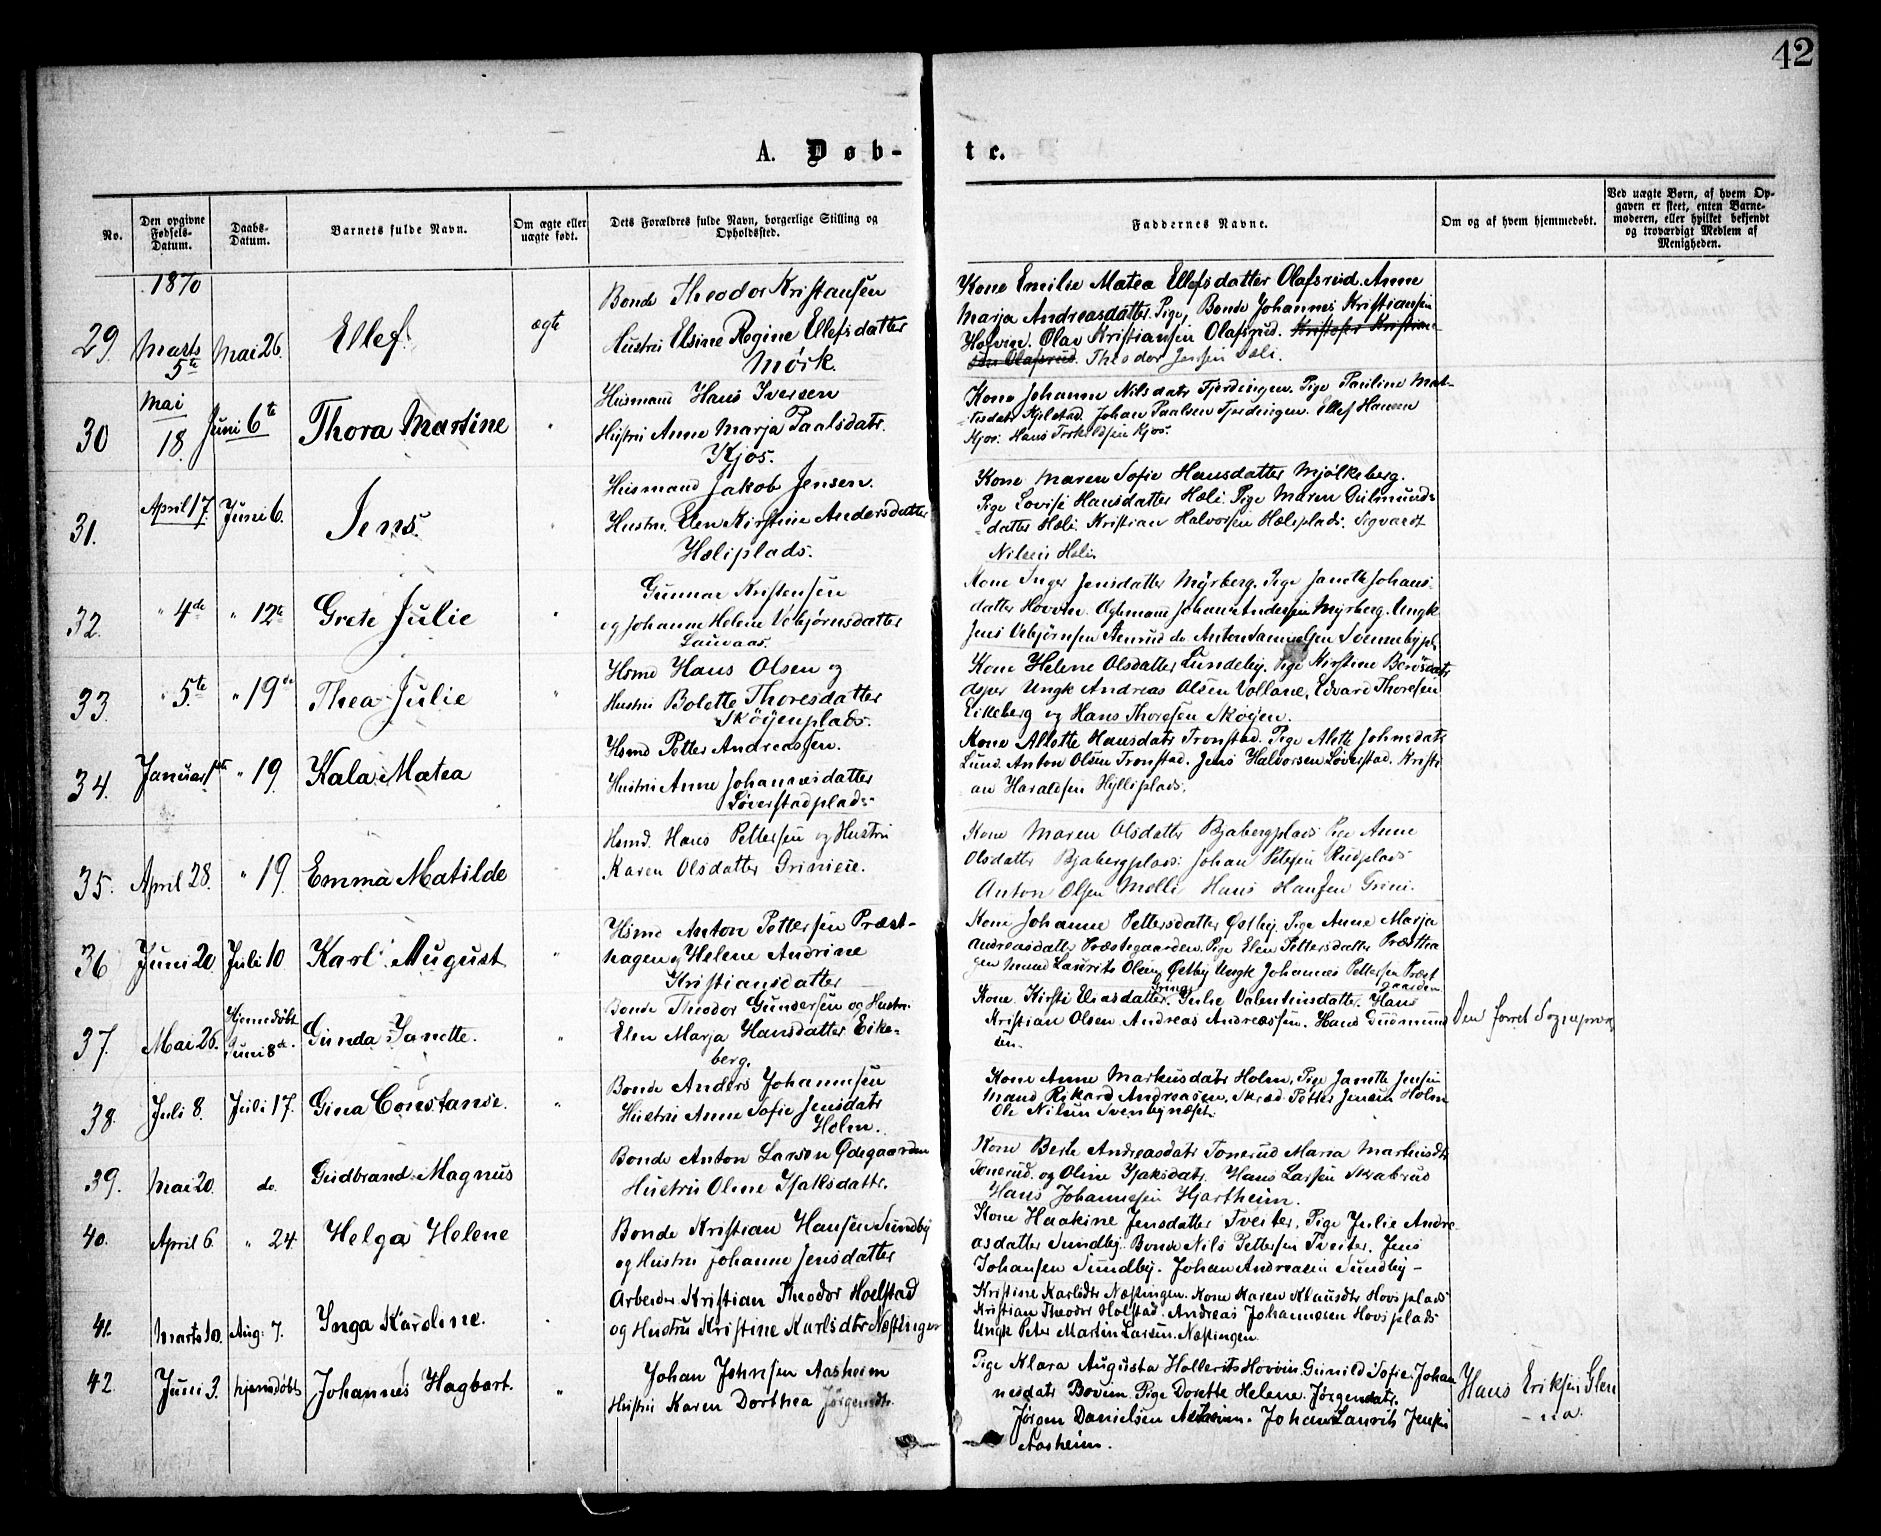 42
A. Døb-
te.
No.
Den opgivne Fødsels-Datum.
Daabs-Datum.
Barnets fulde Navn.
Om ægte eller uægte født.
Dets Forældres fulde Navn, borgerlige Stilling og Opholdssted.
Faddernes Navne.
Om og af hvem hjemmedøbt.
Ved uægte Børn, af hvem Opgaven er skeet, enten Barnemoderen, eller hvilket bekjendt og troværdigt Medlem af Menigheden.
1870
29 Marts 5te Mai 26. Ellef. ægte
Bonde Theodor Kristansen
Hustru Elsine Regine Ellefsdatter
Mørk.
Kone Emilie Matea Ellefsdatter Olafsrud. Anne
Marja Andreasdatter. Pige, Bonde Johannes Kristiansen
Hovin. Olav Kristiansen Olafsrud. Kristofer Kristian-
sen Olafsrud. Theodor Jensen Hæli.
30 Mai 18. Juni 6te Thora Martine "
Husmand Hans Iversen
Hustru Anne Marja Paalsdatr.
Kjos.
Kone Johanne Nilsdatr Fjerdingen. Pige Pauline Mat-
tisdatr Kjilstad. Johan Paalsen Fjerdingen. Ellef Hansen
Kjos. Hans Torkildsen Kjos.
31. April 17. June 6. Jens. "
Husmand Jakob Jensen.
Hustru. Elen Kirstine Andersdatter
Hæliplads.
Kone Maren Sofie Hansdatter Mjølkeberg.
Pige Lovise Hansdatter Hæli. Pige Maren Gulmunds-
datter Hæli. Kristian Halvorsen Hæliplads. Sigvardt
Nilsen Hæli.
32. " 4de " 12te Grete Julie "
Gunnar Kristensen
og Johanne Helene Vebjørnsdatter
Lauvaas.
Kone Inger Jensdatter Myrberg. Pige Janette Johans-
datter Hovin. Johan Andersen Myrberg. Ungk
Jens Vebjørnsen Stenrud do Anton Samuelsen Svennebypl.
33. " 5te " 19de Thea Julie "
Hsmd Hans Olsen og
Hustru Bolette Thoresdatter
Skøyenplads.
Kone Helene Olsdatter Lundeby. Pige Kirstine
Ungk Andreas Olsen Vollane, Edvard Thoresen
Eikeberg og Hans Thoresen Skøyen.
34. Januar 1ste " 19. Kala Matea
Hsmd Petter Andreassen.
Hustru Anne Johannesdatter
Løverstadplads.
Kone Allette Hansdatr Tronstad. Pige Alette Johnsdatr
Lund. Anton Olsen Tronstad. Jens Halvorsen Løverstad. Kristi
an Haraldsen Hylliplads.
35. April 28. " 19. Emma Matilde
Hsmd. Hans Pettersen og Hustru
Karen Olsdatter Grinieie.
Kone Maren Olsdatter Bjabergplads Pige Anne
Olsdatter Bjabergplads. Johan Petersen Rudplads
Anton Olsen Mølli Hans Hansen Grini.
36 Juni 20. Juli 10 Karl August "
Hsmd Anton Pettersen Præst-
hagen og Helene Andrine
Kristiansdatter
Kone Johanne Pettersdatter Østby, Pige Anne Marja
Andreasdatter Præstegaarden. Pige Elen Pettersdatter Præstha
gen Mand Laurits Olsen Østby Ungk Johannes Pettersen Præst
gaarden
37. Mai 26. Hjemmedøbt Juni 8de. Gunda Janette. "
Bonde Theodor Gundersen og Hustru
Elen Marja Hansdatter Eike-
berg.
Kone. Kirsti Eliasdatter. Gulie Valentinsdatter. Hans
Kristian Olsen. Andreas Andreassen. Hans Gudmund
sen.
Den forret Sognepræst
38. Juli 8. Juli 17. Gina Constanse. "
Bonde Anders Johannesen
Hustru Anne Sofie Jensdatr
Holm.
Kone Anne Markusdatr Holm, Pige Janette Jensen
Mand Rikard Andreasen. Skræd. Petter Jensen Holm
Ole Nilsen Svenbynæset.
39. Mai 20. do. Gudbrand Magnus
Bonde Anton Larsen Ødegaarden
Hustru Oline Isaksdattr.
Kone Berte Andreasdatr Tonerud Maria Martinsdtr
Tonerud. og Oline Isaksdatr. Hans Larsen Skabrud
Hans Johannesen Hjartheim.
40. April 6. " 24. Helga Helene
Bonde Kristian Hansen Sundby
og Hustru Johanne Jensdatter
Kone Haakine Jensdatter Tveiter, Pige Julie Andre-
asdatter Sundby. Bonde Nils Pettersen Tveiter. Jens
Johansen Sundby. Johan Andreasen Sundby -
41. Marts 10. Aug: 7. Inga Karoline.
Arbeider. Kristian Theodor Hoelstad
og Hustru Kristine Karlsdtr Næstingen
Kristine Karlsdtr Næstingen. Kone Karen Klausdtr Hovsplads
Kristian Theodor Holstad. Andreas Johannesen Hovsplads
Ungk Peter Martin Larsen. Næstingen.
42. Juni 3. hjemdøbt Johannes Hagbart. "
Johan Johnsen Aasheim
Hustru Karen Dorthea Jørgendtr.
Pige Klara Augusta Hallerits Hovvin. Gunild Sofie. Johan
nesdatr Bovim. Pige Dorette Helene. Jørgendatr.
Jørgen Danielsen Aasheim. Johan Laurits Jensen
Aasheim.
Hans Eriksen Glen